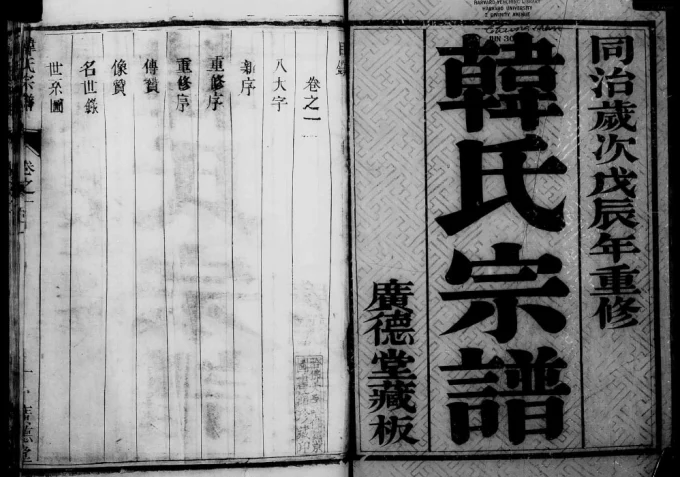 HARVARD-YENCHING LIBRARY
HARVARD UNIVERSITY
2 DIVINITY AVENUE
同治歲次戊辰年重修
韓氏宗譜
廣德堂藏板
目錄
卷之一
八大字
新序
重修序
重修序
傳贊
像贊
名世錄
世系圖
韓氏宗譜
卷之一